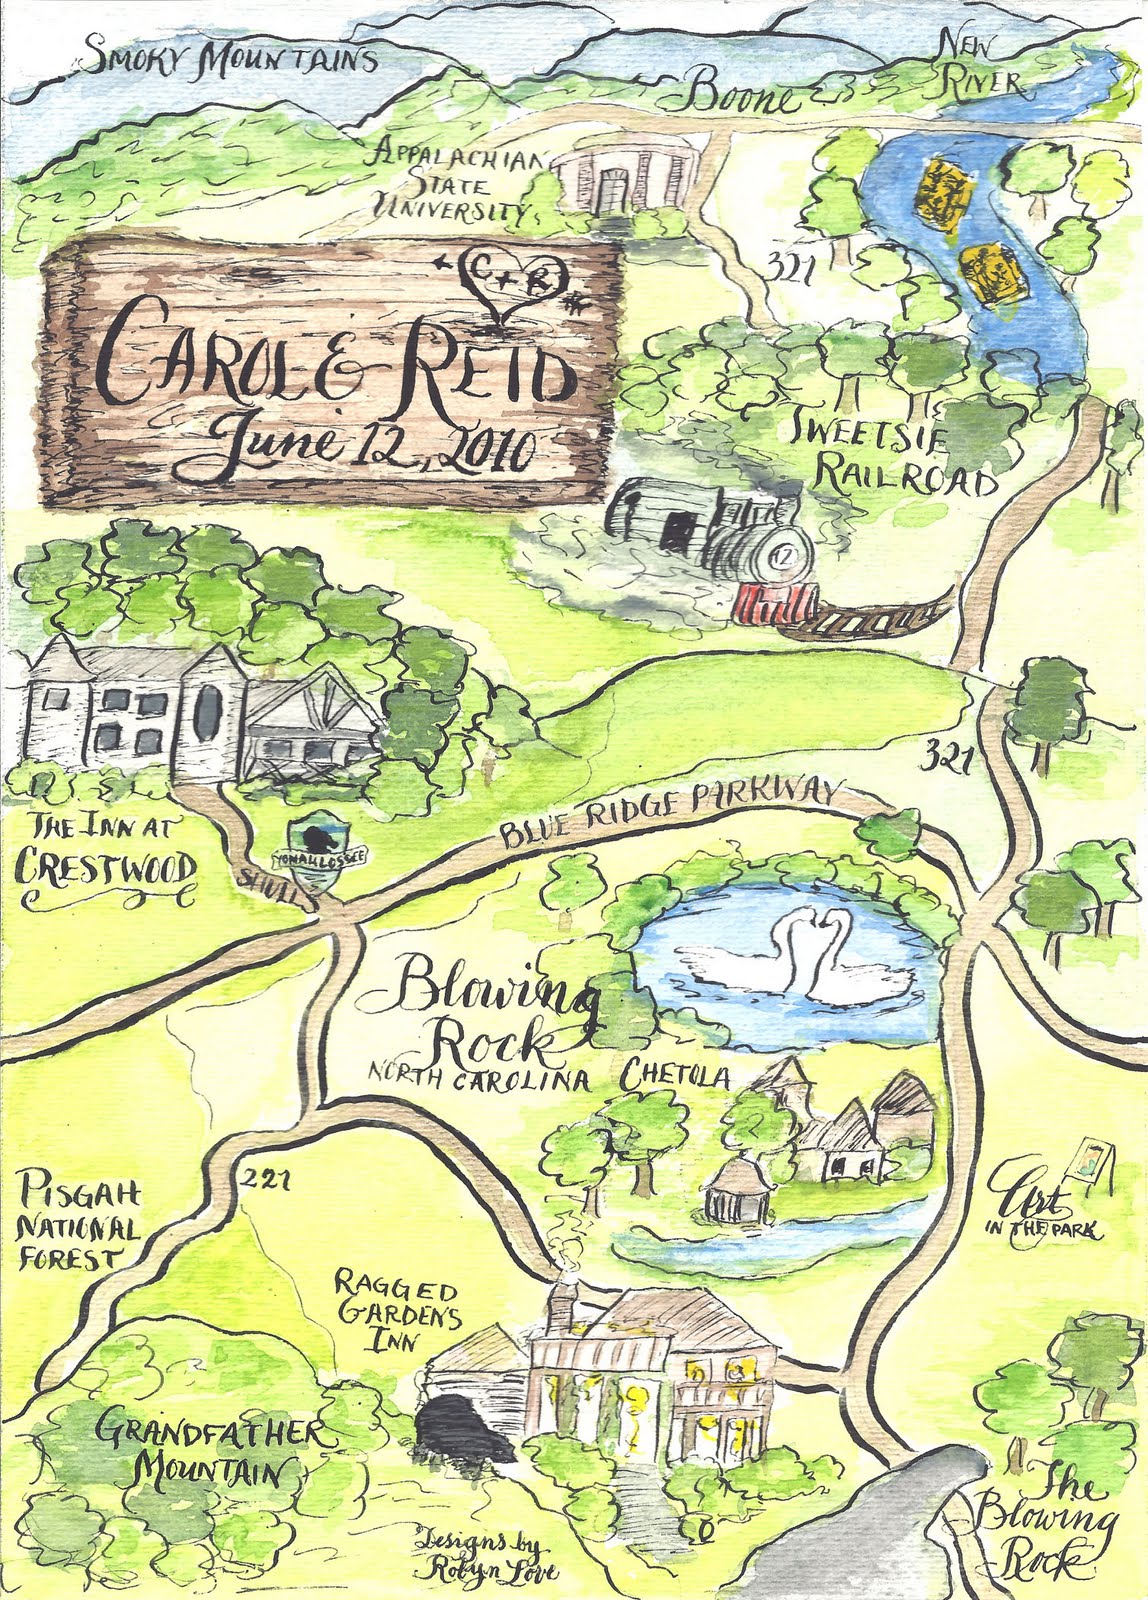 SMOKY MOUNTAINS
NEW
RIVER
BOONE
APPALACHIAN
STATE
UNIVERSITY
321
C + R
CAROL & REID
June 12, 2010
TWEETSIE
RAILROAD
12
321
BLUE RIDGE PARKWAY
THE INN AT
CRESTWOOD
YONAHLOSSEE
SHULLS
Blowing
Rock
NORTH CAROLINA
CHETOLA
221
PISGAH
NATIONAL
FOREST
Art
IN THE PARK
RAGGED
GARDENS
INN
GRANDFATHER
MOUNTAIN
The
Blowing
Rock
Designs by
Robyn Love